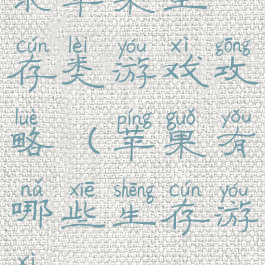 cún lèi yóu xì gōng
存类游戏攻
lüè píng guǒ yǒu
略（苹果有
nǎ xiē shēng cún yóu
哪些生存游
xì